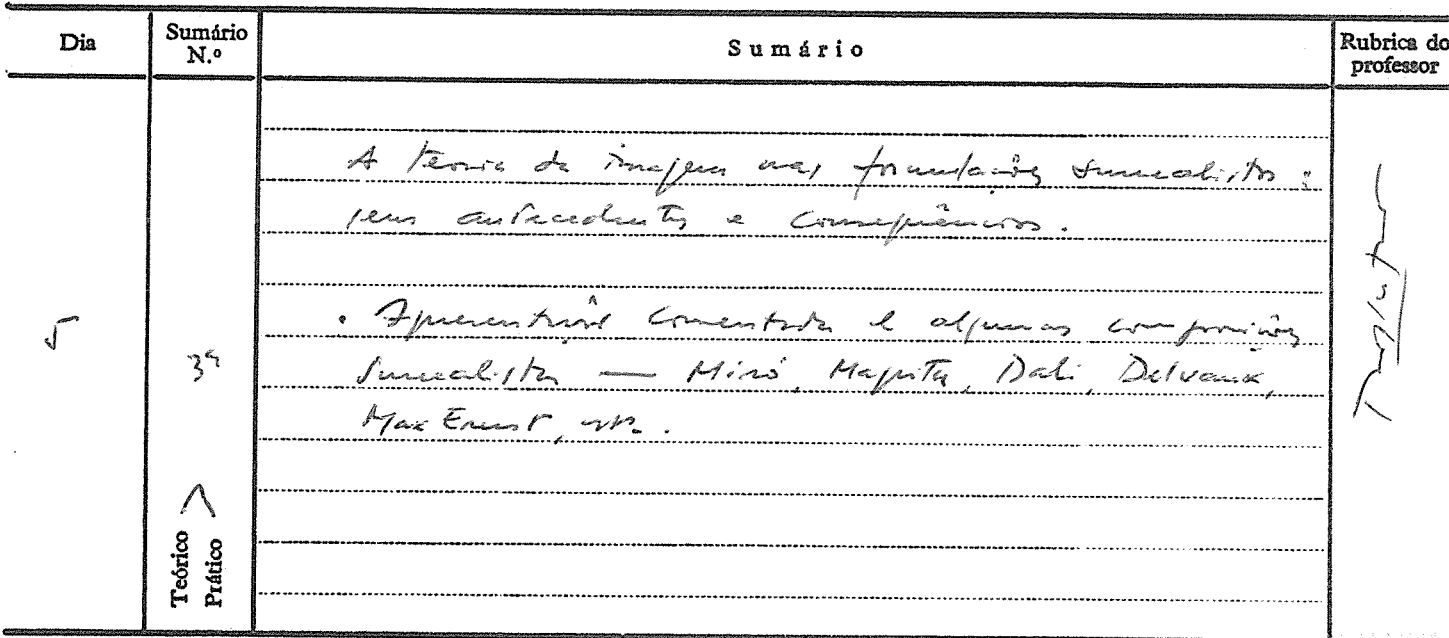 Dia
Sumário N.º
Sumário
Rubrica do professor
A teoria da imagem nas formulações surrealistas:
seus antecedentes e consequências.
. Apresentação comentada de algumas composições
surrealistas — Miró, Magritte, Dali, Delvaux,
Max Ernst, etc.
5
3ª
Teórico
Prático